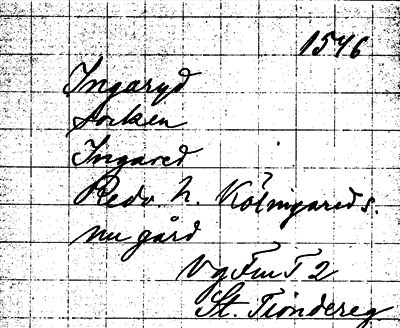 1546
Ingaryd
socken
Ingared
Redv. h. Kölingareds.
nu gård
Vg Fru T 2
St. Tiondereg